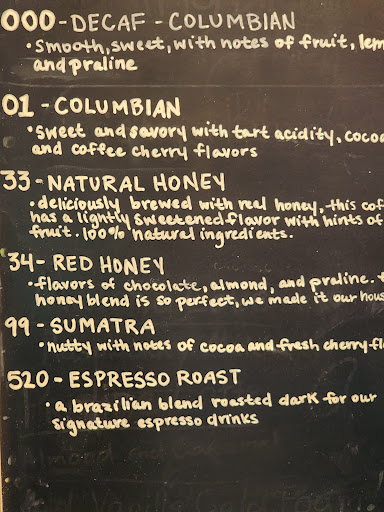 000-DECAF-COLUMBIAN
• Smooth, sweet, with notes of fruit,
and praline
01 - COLUMBIAN
• Sweet and savory with tart acidity,
and coffee cherry flavors
33-NATURAL HONEY
• deliciously brewed with real honey, this
has a lightly sweetened flavor with hints of
fruit. 100% natural ingredients.
34- RED HONEY
• flavors of chocolate, almond, and praline.
honey blend is so perfect, we made it our
99 - SUMATRA
• nutty with notes of cocoa and fresh cherry
520-ESPRESSO ROAST
• a brazilian blend roasted dark for our
signature espresso drinks